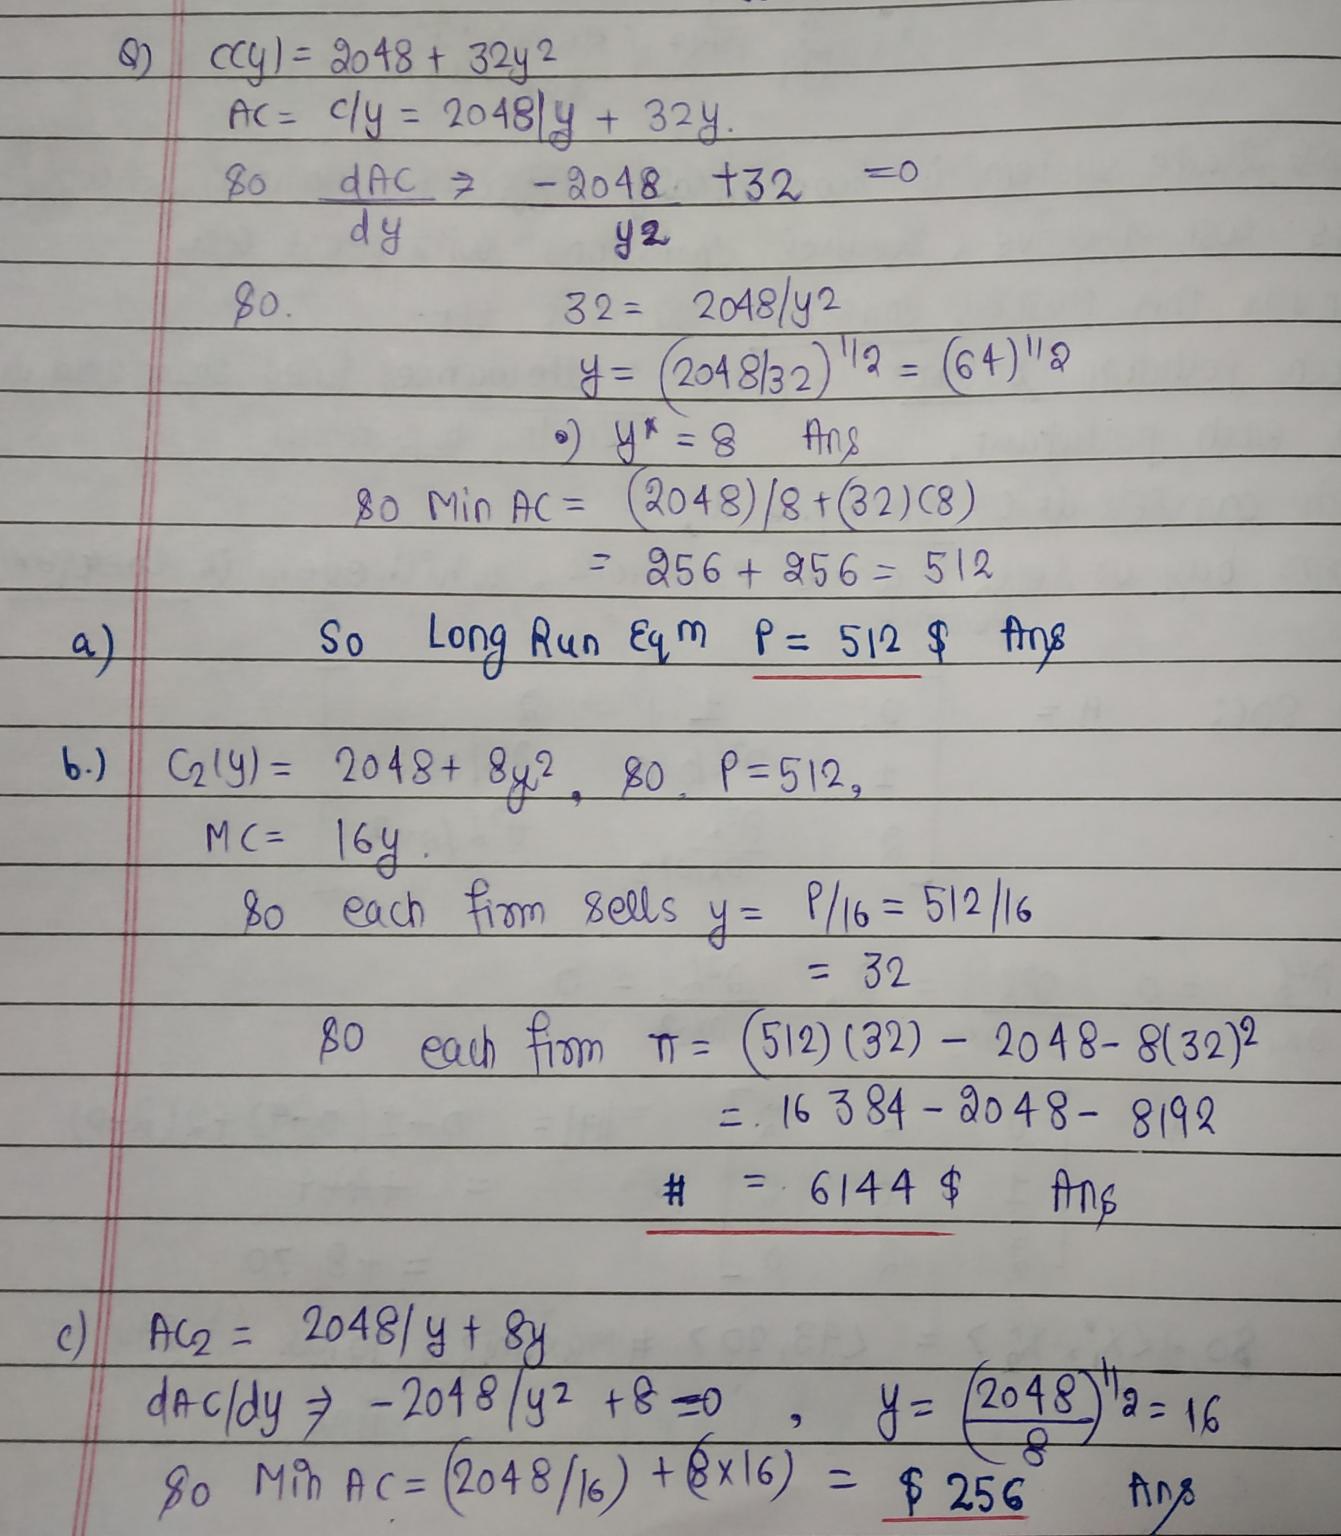 Q) C(y) = 2048 + 32y2
AC = c/y = 2048/y + 32y.
So dAC/dy ⇒ -2048/y2 +32 =0
So. 32 = 2048/y2
y = (2048/32)^1/2 = (64)^1/2
•) y* = 8 Ans
So Min AC = (2048)/8+(32)(8)
= 256 + 256 = 512
a) So Long Run Eqm P = 512 $ Ans
b.) C2(y) = 2048 + 8y2, So, P=512,
MC = 16y.
So each firm sells y = P/16 = 512/16
= 32
So each firm π = (512)(32) - 2048 - 8(32)2
= 16384 - 2048 - 8192
# = 6144 $ Ans
c) AC2 = 2048/y + 8y
dAC/dy ⇒ -2048/y2 +8 =0 , y = (2048/8)^1/2 = 16
So Min AC = (2048/16) + (8x16) = $ 256 Ans